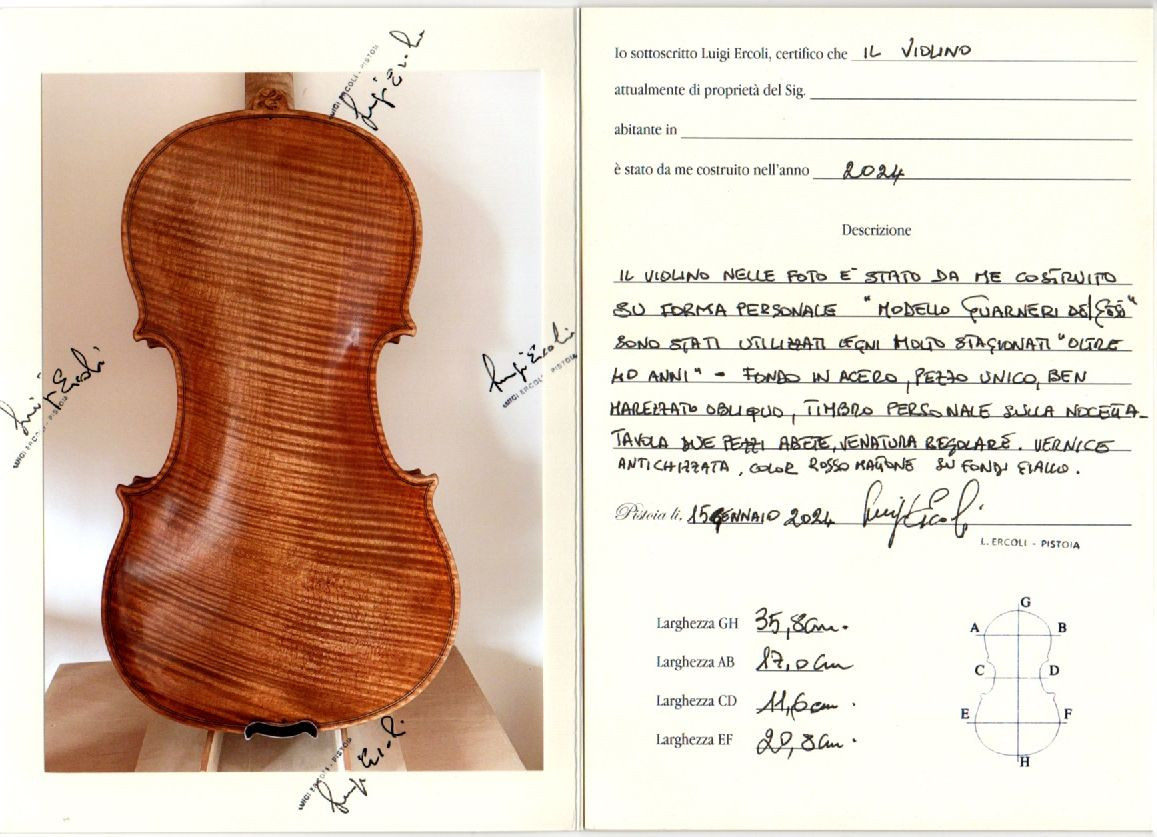 Luigi Ercoli
LUIGI ERCOLI - PISTOIA
Luigi Ercoli
LUIGI ERCOLI - PISTOIA
Luigi Ercoli
LUIGI ERCOLI - PISTOIA
Luigi Ercoli
LUIGI ERCOLI - PISTOIA
Io sottoscritto Luigi Ercoli, certifico che IL VIOLINO
attualmente di proprietà del Sig.
abitante in
è stato da me costruito nell'anno 2024
Descrizione
IL VIOLINO NELLE FOTO E' STATO DA ME COSTRUITO
SU FORMA PERSONALE "MODELLO GUARNERI DEL GESÙ"
SONO STATI UTILIZZATI LEGNI MOLTO STAGIONATI "OLTRE
40 ANNI" - FONDO IN ACERO, PEZZO UNICO, BEN
MAREZZATO OBLIQUO, TIMBRO PERSONALE SULLA NOCETTA-
TAVOLA DUE PEZZI ABETE, VENATURA REGOLARE. VERNICE
ANTICHIZZATA, COLOR ROSSO MATTONE SU FONDI GIALLO.
Pistoia lì. 15 GENNAIO 2024 Luigi Ercoli
L. ERCOLI - PISTOIA
Larghezza GH 35,8 cm.
Larghezza AB 17,0 cm
Larghezza CD 11,6 cm.
Larghezza EF 20,8 cm.
G
A B
C D
E F
H